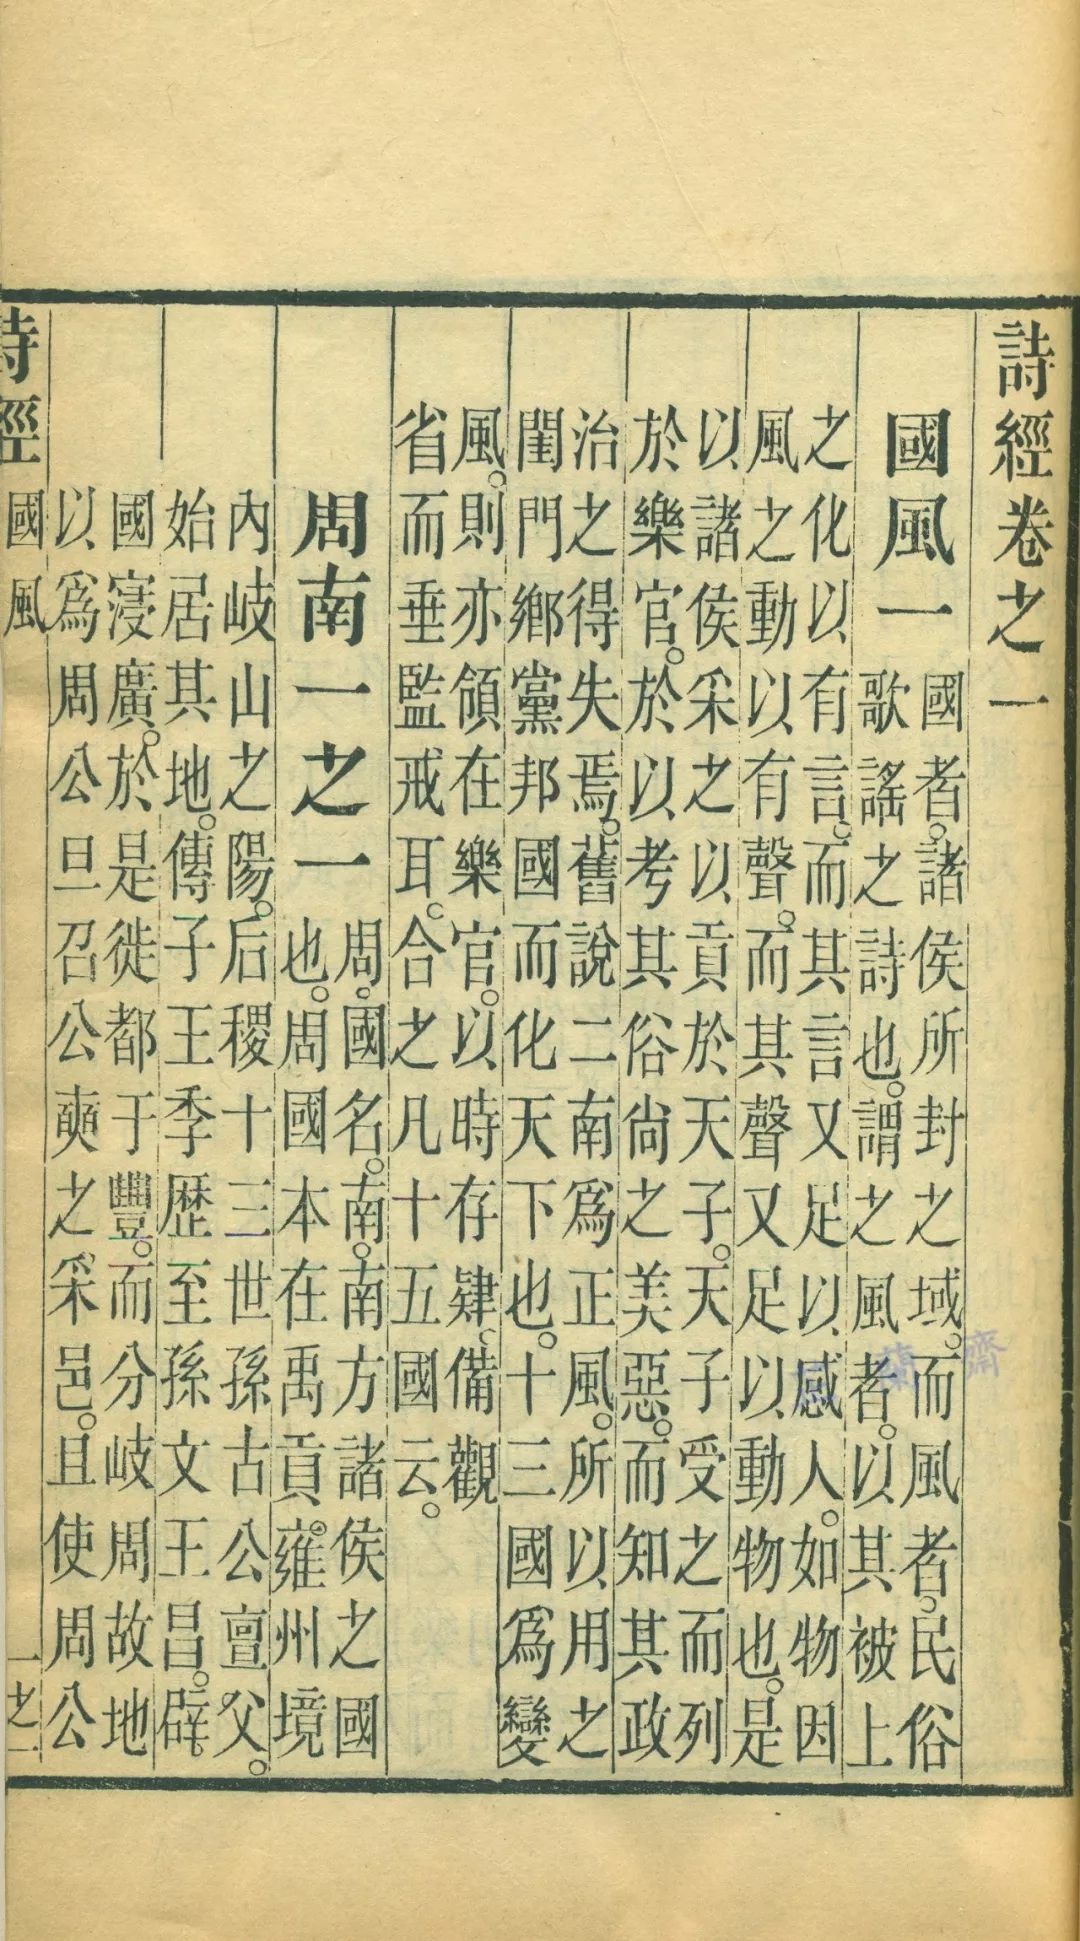 詩經卷之一
國風一
國者。諸侯所封之域。而風者。民俗
歌謠之詩也。謂之風者。以其被上
之化以有言。而其言又足以感人。如物因
風之動以有聲。而其聲又足以動物也。是
以諸侯采之以貢於天子。天子受之而列
於樂官。於以考其俗尙之美惡。而知其政
治之得失焉。舊說二南爲正風。所以用之
閨門鄉黨邦國而化天下也。十三國爲變
風。則亦領在樂官。以時存肄。備觀
省而垂監戒耳。合之凡十五國云。
周南一之一
周。國名。南。南方諸侯之國
也。周國本在禹貢。雍州境
內岐山之陽。后稷十三世孫古公亶父。
始居其地。傳子王季歷至孫文王昌。辟
國寖廣。於是徙都于豐。而分岐周故地
以爲周公旦召公奭之采邑。且使周公
詩經
國風
一之一
蘭齋